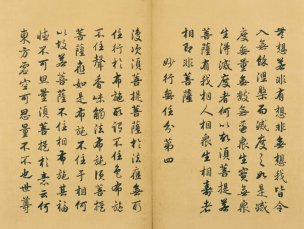 無想若非有想非無想我皆令
入無餘涅槃而滅度之如是滅
度無量無數無邊眾生實無眾
生得滅度者何以故須菩提若
菩薩有我相人相眾生相壽者
相即非菩薩
妙行無住分第四
復次須菩提菩薩於法應無所
住行於布施所謂不住色布施
不住聲香味觸法布施須菩提
菩薩應如是布施不住於相何
以故若菩薩不住相布施其福
德不可思量須菩提於意云何
東方虛空可思量不不也世尊